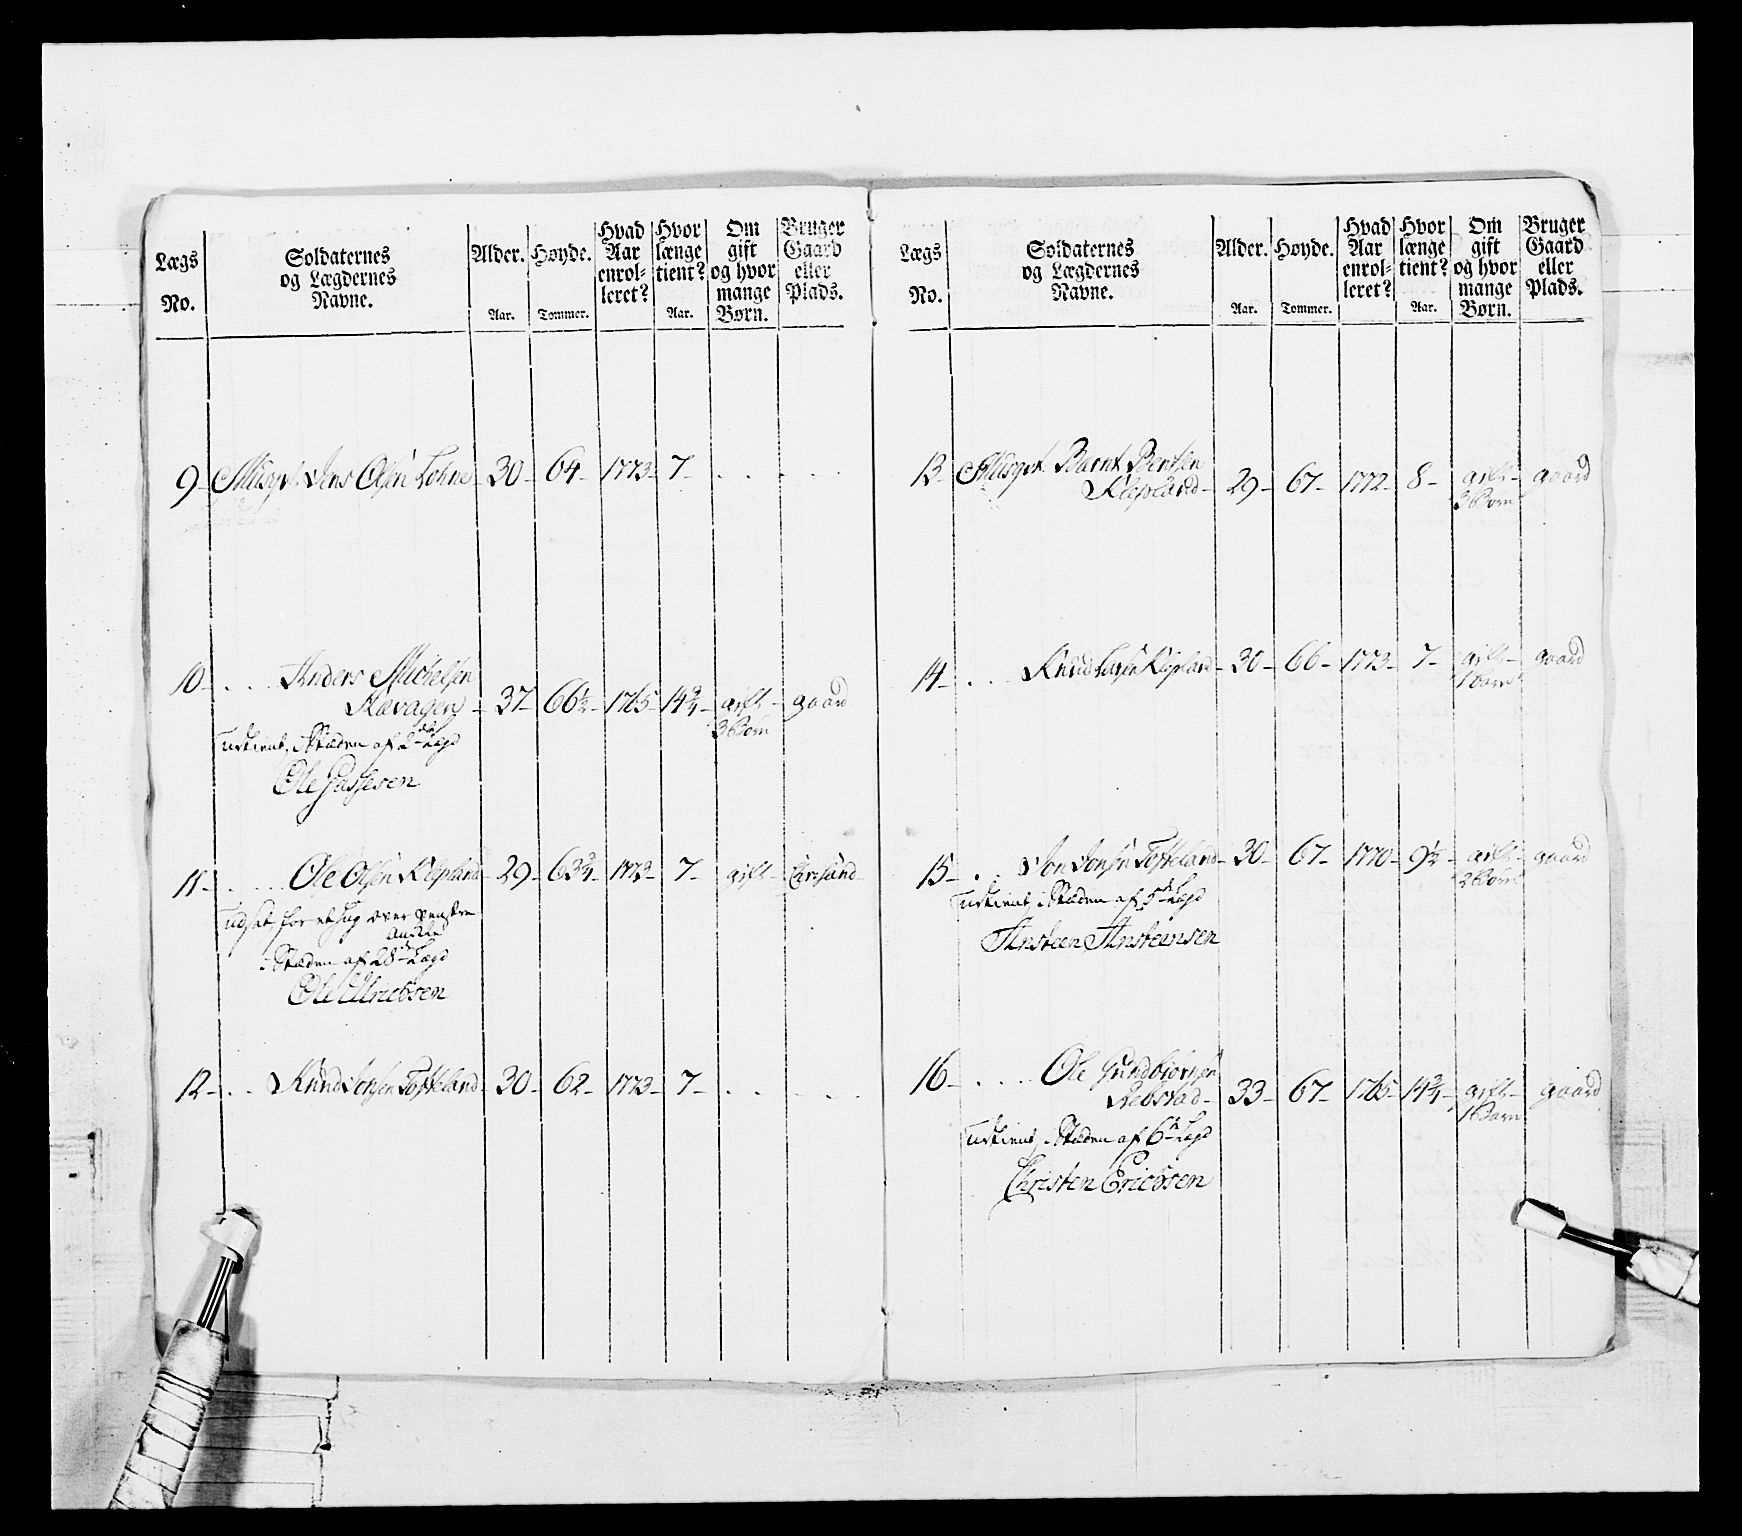 Lægs No. Soldaternes og Lægdernes Navne. Alder. Aar. Høyde. Tommer. Hvad Aar enrol-leret? Hvor længe tient? Aar. Om gift og hvor mange Børn. Bruger Gaard eller Plads.
9 Musqvt. Jens Olsen Lohne 30 64 1773 7
10 Anders Michelsen
Kavagen 37 66½ 1765 14¾ gift gaard
3 Børn
udtient, i Stæden af 2de Lægd
Ole Gassesen
11 Ole Olsen Klepland 29 63¾ 1773 7 gift Chr:sand
udsat for et hug over venstre
Ankle
i Stæden af 28de Lægd
Ole Ulrichsen
12 Knud Jonsen Tofteland 30 62 1773 7
Lægs No. Soldaternes og Lægdernes Navne. Alder. Aar. Høyde. Tommer. Hvad Aar enrol-leret? Hvor længe tient? Aar. Om gift og hvor mange Børn. Bruger Gaard eller Plads.
13 Musqvt. Barnt Bentsen
Klepland 29 67 1772 8 gift gaard
3 Børn
14 Knud Klepland 30 66 1773 7 gift gaard
1 Barn
15 Jon Jonsen Tofteland 30 67 1770 9½ gift gaard
2 Børn
udtient, i Stæden af 5te Lægd
Ansteen Ansteensen
16 Ole Gundbiørnsen
Rebstad 33 67 1765 14¾ gift gaard
1 Barn
udtient, i Stæden af 6te Lægd
Christen Erichsen